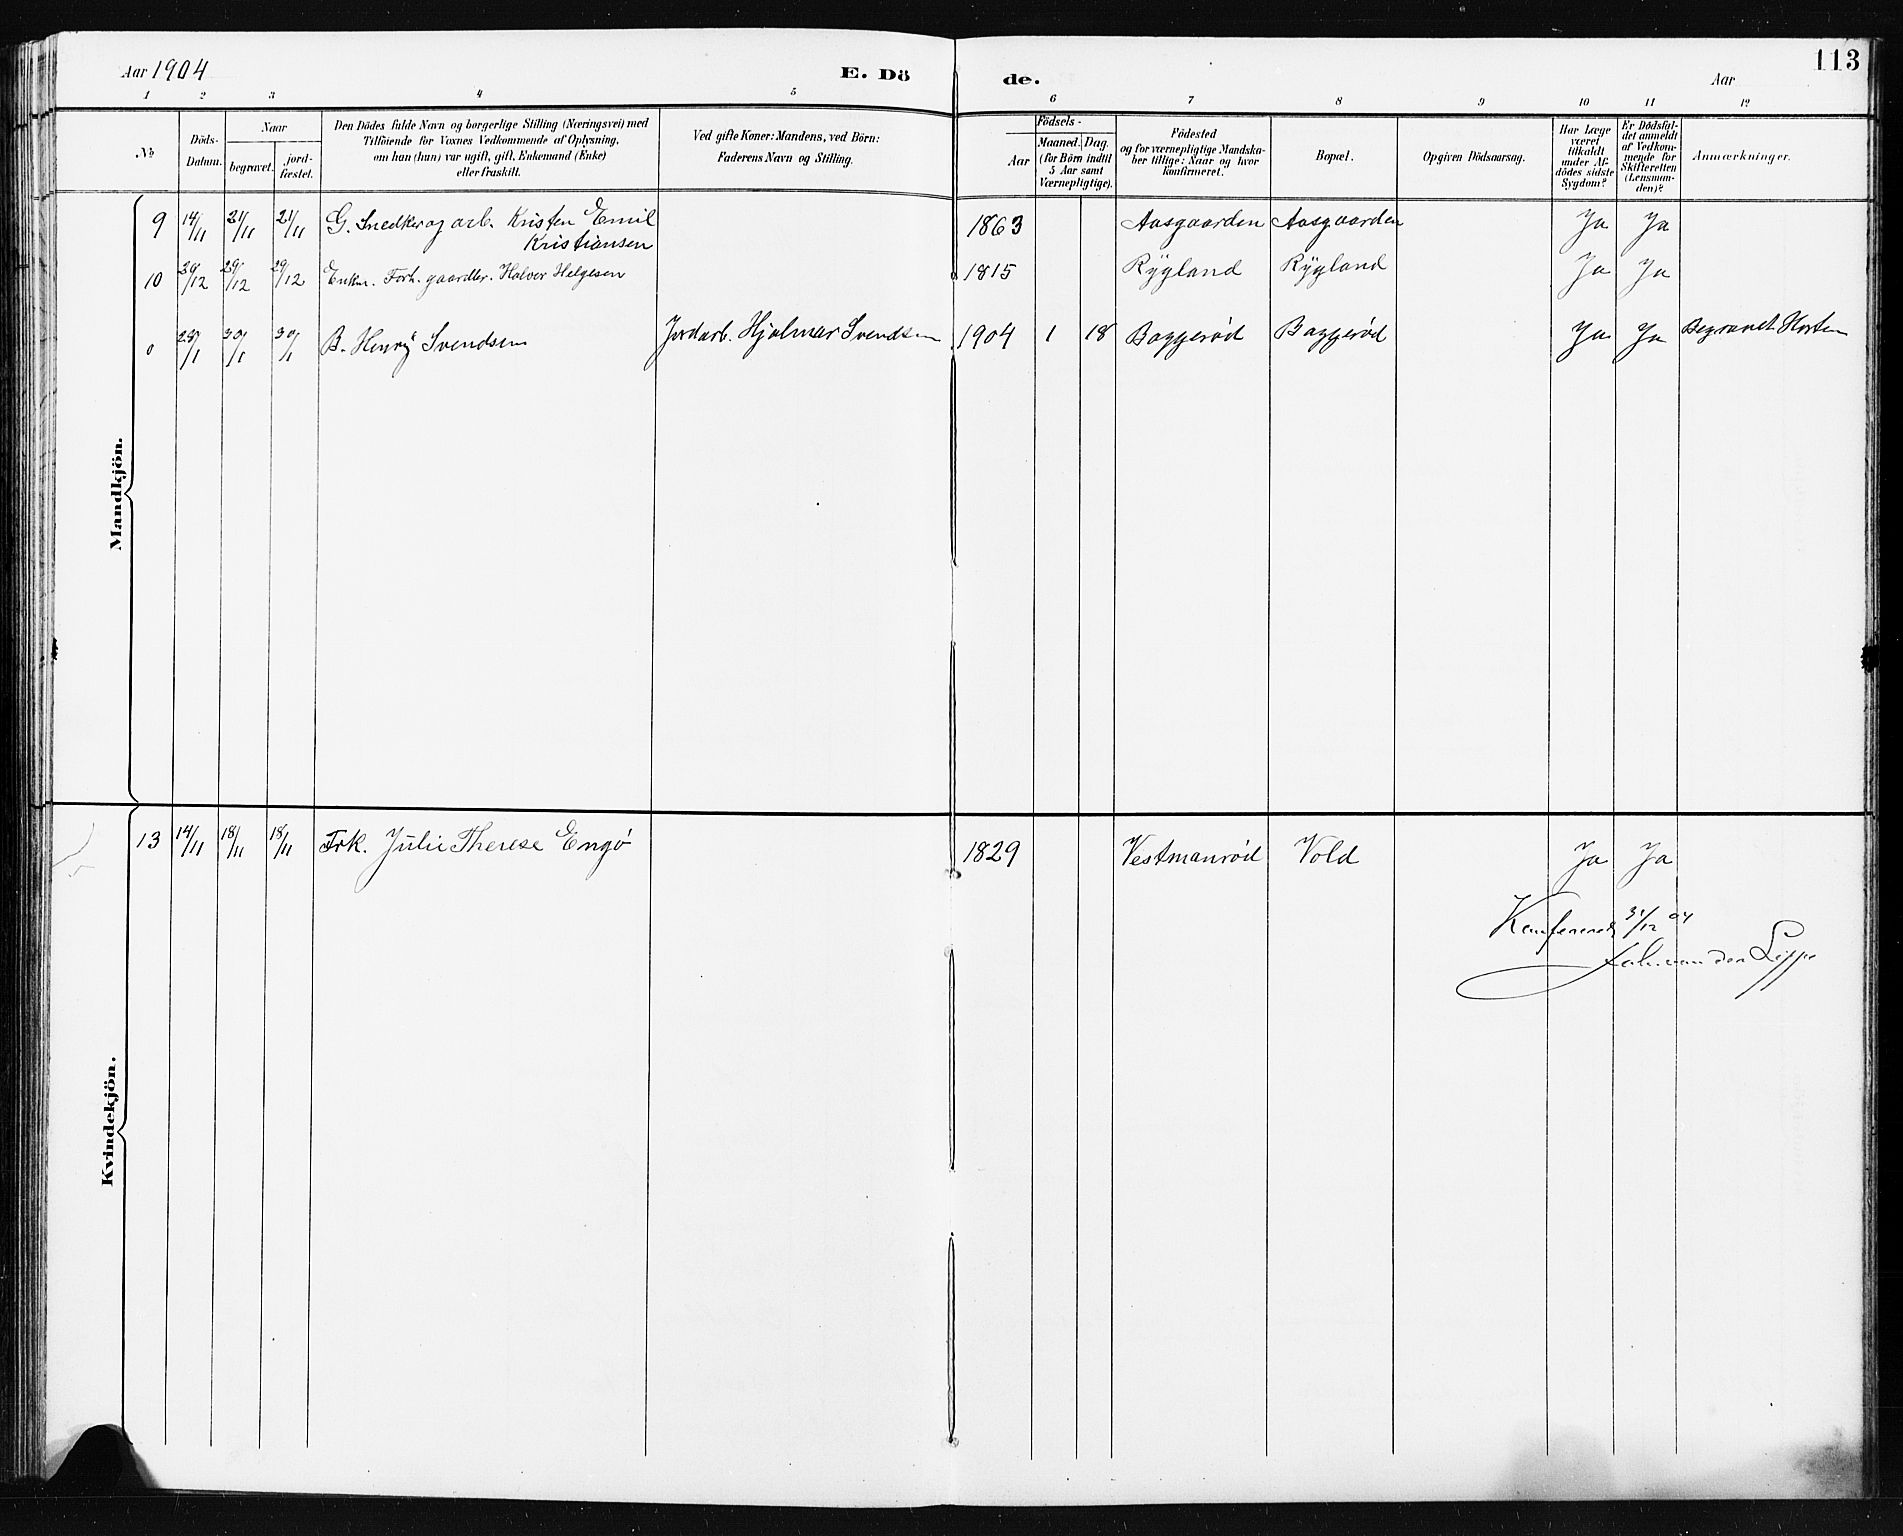 Aar 1904 E. Dö de. Aar 113
1 2 3 4 5 6 7 8 9 10 11 12
№
Döds-
Datum.
Naar
begravet.
jord-
fæstet.
Den Dödes fulde Navn og borgerlige Stilling (Næringsvei) med
Tilföiende for Voxnes Vedkommende af Oplysning,
om han (hun) var ugift, gift, Enkemand (Enke)
eller fraskilt.
Ved gifte Koner: Mandens, ved Börn:
Faderens Navn og Stilling.
Födsels-
Aar
Maaned. Dag.
(for Börn indtil
5 Aar samt
Værnepligtige).
Födested
og for værnepligtige Mandska-
ber tillige: Naar og hvor
konfirmeret.
Bopæl.
Opgiven Dödsaarsag.
Har Læge
været
tilkaldt
under Af-
dödes sidste
Sygdom?
Er Dödsfal-
det anmeldt
af Vedkom-
mende for
Skifteretten
(Lensman-
den)?
Anmærkninger.
Mandkjön.
9 14/11 21/11 21/11 G. Snedker og arb. Kristen Emil 1863 Aasgaarden Aasgaarden Ja Ja
Kristiansen
10 20/12 29/12 29/12 Enkm. Forh. gaardbr. Halvor Helgesen 1815 Rygland Rygland Ja Ja
0 25/1 30/1 30/1 B. Henry Svendsen Jordarb. Hjalmar Svendsen 1904 1 18 Baggerød Baggerød Ja Ja Begravet Horten
Kvindekjön.
13 14/11 18/11 18/11 Frk. Julie Therese Engø 1829 Vestmanrød Vold Ja Ja
Konfereret 31/12 04
van der Lippe